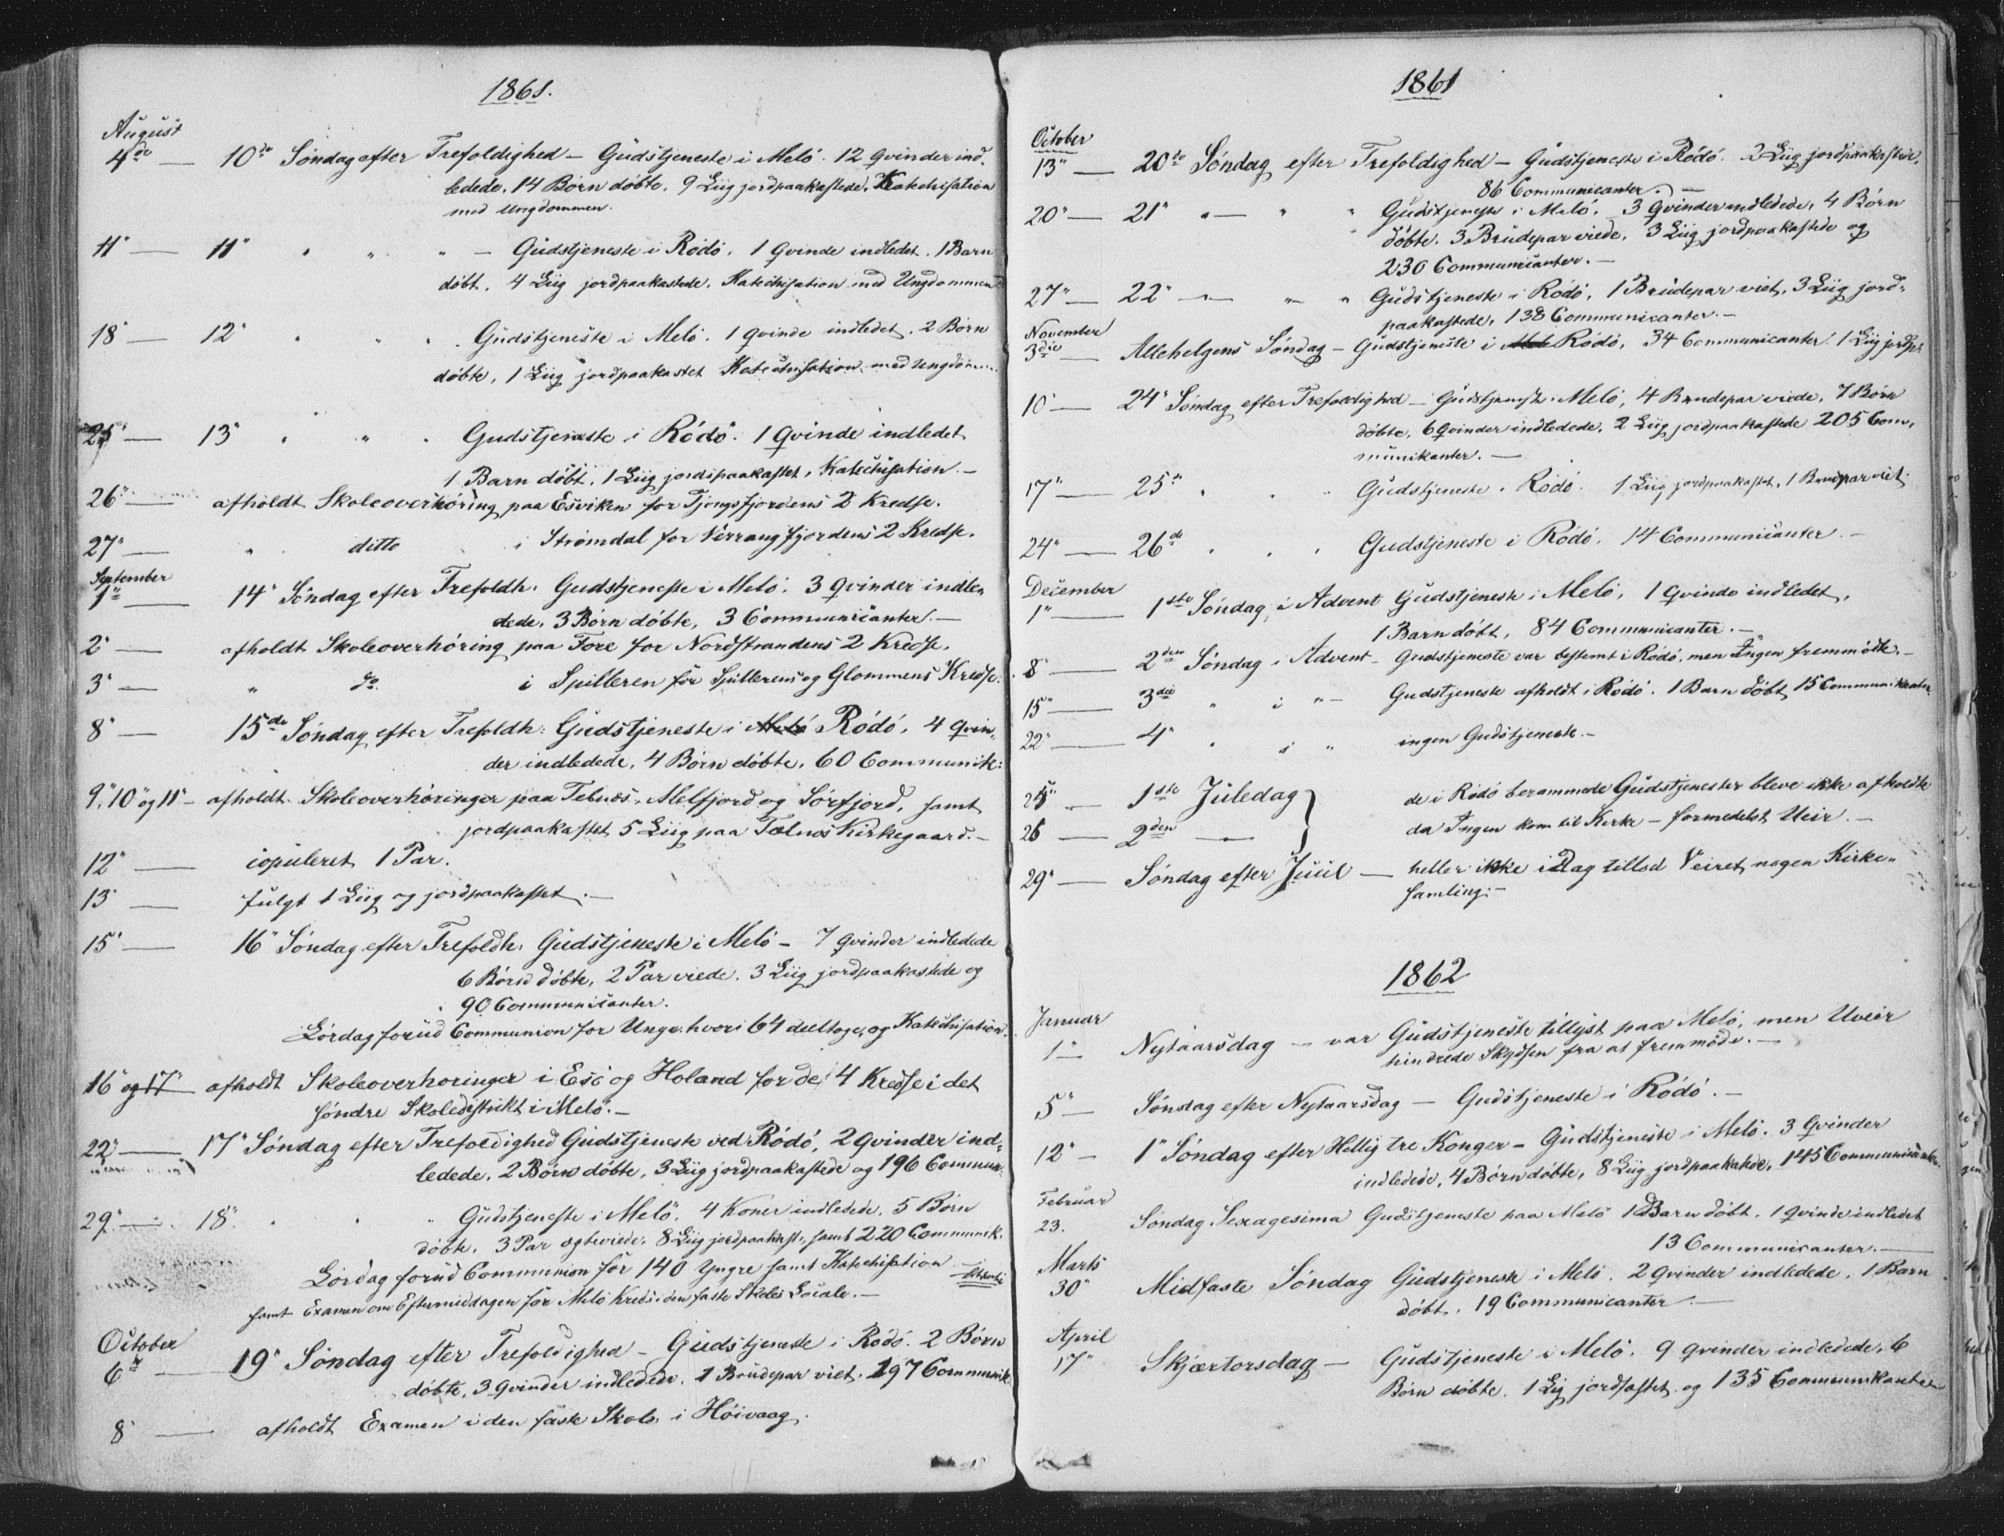 1861.
August
4de — 10de Søndag efter Trefoldighed – Gudstjeneste i Melö. 12 Qvinder ind-
ledede, 14 Børn døbte, 9 Liig jordpaakastede, Katechisation
med Ungdommen.
11" — 11" " " " – Gudstjeneste i Rödö. 1 Qvinde indledet. 1 Barn
døbt, 4 Liig jordpaakastede, Katechisation med Ungdommen
18" — 12" " " " Gudstjeneste i Melö. 1 Qvinde indledet. 2 Børn
døbte, 1 Liig jordpaakastet Katechisation med Ungdom
25" — 13" " " " Gudstjeneste i Rödö. 1 Qvinde indledet
1 Barn døbt, 1 Liig jordspaakastet, Katechisation. –
26" — afholdt Skoleoverhöring paa Esviken for Tjongsfjordens 2 Kredse.
27" — " ditto i Strömdal for Værrangfjordens 2 Kredse.
September
1" — 14" Søndag efter Trefoldh. Gudstjeneste i Melö. 3 Qvinder indle-
dede, 3 Børn døbte, 3 Communicanter. –
2" — afholdt Skoleoverhøring paa Fore for Nordstrandens 2 Kredse.
3" — " do. i Spilleren för Spillerens og Glommens Kredse.
8" — 15de Søndag efter Trefoldh: Gudstjeneste i Melö Rödö, 4 Qvin-
der indledede, 4 Børn døbte, 60 Communik:
9" 10" og 11" – afholdt Skoleoverhøringer paa Telnæs, Melfjord og Sørfjord, samt
jordpaakastet 5 Liig paa Telnæs Kirkegaard. –
12" — copuleret 1 Par.
13" — fulgt 1 Liig og jordpaakastet. –
15" — 16" Søndag efter Trefoldh. Gudstjeneste i Melö – 7 Qvinder indledede
6 Børn døbte, 2 Par viede. 3 Liig jordpaakastede og
90 Communicanter.
Lørdag forud Communion for Unge, hvori 64 deeltoge, og Katechisation.
16 og 17" afholdt Skoleoverhoringer i Esö og Holand for de 4 Kredse i det
söndre Skoledistrikt i Melö. –
22" — 17" Søndag efter Trefoldighed Gudstjeneste ved Rödö, 2 Qvinder ind-
ledede, 2 Børn døbte, 3 Liig jordpaakastede og 196 Commun.
29" — 18" " " Gudstjeneste i Melö. 4 Koner indledede, 5 Børn
døbte, 3 Par ægteviede, 8 Liig jordpaakast., samt 220 Communik.
Lördag forud Communion för 140 Yngre samt Katechisation –
samt Examen om Eftermiddagen för Melö Kreds i den faste Skoles Locale. –
October
6te — 19" Søndag efter Trefoldighed – Gudstjeneste i Rödö. 2 Børn
døbte, 3 Qvinder indledede. 1 Brudepar viet. 197 Communik
8" — afholdt Examen i den faste Skole i Höivaag.
1861
October
13" — 20de Søndag efter Trefoldighed – Gudstjeneste i Rödö. 2 Liig jordpaakastede,
86 Communicanter. –
20" — 21" " — " " Gudstjeneste i Melö. 3 Qvinder indledede, 4 Børn
døbte. 3 Brudepar viede, 3 Liig jordpaakastede og
230 Communicanter. –
27" — 22" — " " Gudstjeneste i Rödö, 1 Brudepar viet, 3 Liig jord-
paakastede, 138 Communicanter. –
November
3die — Allehelgens Søndag – Gudstjeneste i Melö Rödö, 34 Communicanter. 1 Liig jordp.
10" — 24" Søndag efter Trefoldighed – Gudstjeneste i Melö, 4 Brudepar viede, 7 Børn
døbte, 6 Qvinder indledede, 2 Liig jordpaakastede 205 Com-
munikanter. –
17" — 25" " " Gudstjeneste i Rödö. 1 Liig jordpaakastet, 1 Brudpar viet
24" — 26de " " " Gudstjeneste i Rödö. 14 Communicanter. –
December
1" — 1ste Søndag i Advent Gudstjeneste i Melö, 1 Qvinde indledet,
1 Barn døbt, 84 Communicanter. –
8" — 2den Søndag i Advent – Gudstjeneste var bestemt i Rödö, men Ingen fremmödte. –
15" — 3die " i " – Gudstjeneste afholdt i Rödö. 1 Barn döbt, 15 Communikanter
22" — 4" " i " ingen Gudstjeneste. –
25" — 1ste Juledag } de i Rödö berammede Gudstjenester bleve ikke afholdte
26 — 2den — da Ingen kom til Kirke – formedelst Uveir. –
29" — Søndag efter Juul — heller ikke i Dag tillod Veiret nogen Kirke-
samling. –
1862
Januar
1" Nytaarsdag – var Gudstjeneste tillyst paa Melö, men Uveir
hindrede Skydsen fra at fremmöde. –
5" — Søndag efter Nytaarsdag – Gudstjeneste i Rödö. –
12" – 1" Søndag efter Hellig tre Konger – Gudstjeneste i Melö. 3 Qvinder
indledede, 4 Børn døbte, 8 Liig jordpaakastede, 145 Communicanter
Februar
23. Søndag Sexagesima Gudstjeneste paa Melö 1 Barn døbt. 1 Qvinde indledet
13 Communicanter. –
Marts
30" Midfaste Søndag Gudstjeneste i Melö. 2 Qvinder indledede. 1 Barn
döbt. 19 Communicanter. –
April
17" Skjærtorsdag – Gudstjeneste i Melö. 9 Qvinder indledede, 6
Børn døbte. 1 Lig jordfæstet og 135 Communikanter